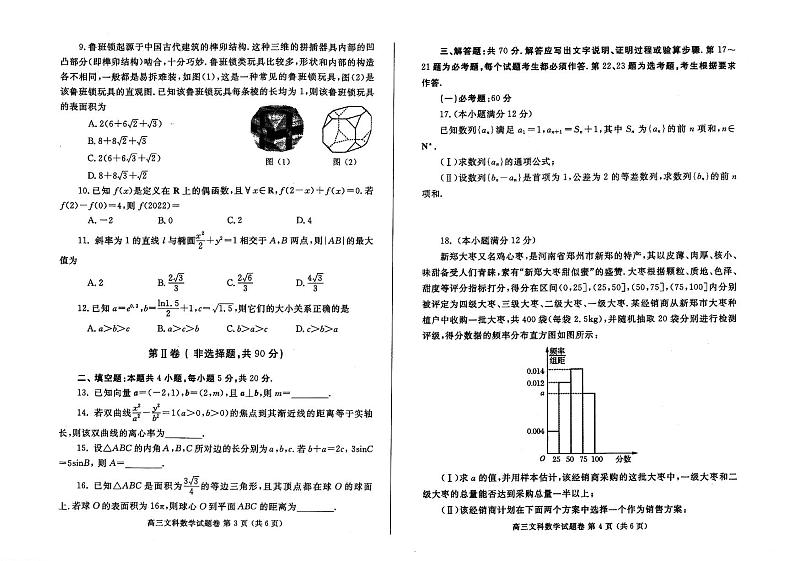 9. 鲁班锁起源于中国古代建筑的榫卯结构. 这种三维的拼插器具内部的凹
凸部分(即榫卯结构)啮合,十分巧妙. 鲁班锁类玩具比较多,形状和内部的构造
各不相同,一般都是易拆难装,如图(1),这是一种常见的鲁班锁玩具,图(2)是
该鲁班锁玩具的直观图. 已知该鲁班锁玩具每条棱的长均为 1,则该鲁班锁玩具
的表面积为
A. 2(6+6√2+√3)
B. 8+8√2+√3
C. 2(6+6√3+√2)
D. 8+8√3+√2
图(1) 图(2)
10. 已知 f(x)是定义在 R 上的偶函数,且∀x∈R,f(2-x)+f(x)=0. 若
f(2)-f(0)=4,则 f(2022)=
A. -2 B. 0 C. 2 D. 4
11. 斜率为 1 的直线 l 与椭圆x²/2+y²=1 相交于 A,B 两点,则|AB|的最大
值为
A. 2 B. 2√3/3 C. 2√6/3 D. 4√3/3
12. 已知 a=e^0.2,b=ln1.5/2+1,c=√1.5,则它们的大小关系正确的是
A. a>b>c B. a>c>b C. b>a>c D. c>b>a
第Ⅱ卷 ( 非选择题,共 90 分)
二、填空题:本题共 4 小题,每小题 5 分,共 20 分.
13. 已知向量 a=(-2,1),b=(2,m),且 a⊥b,则 m=________.
14. 若双曲线x²/a²-y²/b²=1(a>0,b>0)的焦点到其渐近线的距离等于实轴
长,则该双曲线的离心率为________.
15. 设△ABC 的内角 A,B,C 所对边的长分别为 a,b,c. 若 b+a=2c, 3sinC
=5sinB, 则 A=________.
16. 已知△ABC 是面积为3√3/4的等边三角形,且其顶点都在球 O 的球面
上. 若球 O 的表面积为 16π,则球心 O 到平面 ABC 的距离为________.
高三文科数学试题卷 第 3 页 (共 6 页)
三、解答题:共 70 分. 解答应写出文字说明、证明过程或验算步骤. 第 17~
21 题为必考题,每个试题考生都必须作答. 第 22、23 题为选考题,考生根据要求
作答.
(一)必考题:60 分
17. (本小题满分 12 分)
已知数列{aₙ}满足 a₁=1,aₙ₊₁=Sₙ+1,其中 Sₙ 为{aₙ}的前 n 项和,n∈
N*.
(Ⅰ)求数列{aₙ}的通项公式;
(Ⅱ)设数列{bₙ-aₙ}是首项为 1,公差为 2 的等差数列,求数列{bₙ}的前 n
项和.
18. (本小题满分 12 分)
新郑大枣又名鸡心枣,是河南省郑州市新郑的特产,其以皮薄、肉厚、核小、
味甜备受人们青睐,素有“新郑大枣甜似蜜”的盛赞. 大枣根据颗粒、质地、色泽、
甜度等评分指标打分,得分在区间(0,25],(25,50],(50,75],(75,100]内分别
被评定为四级大枣、三级大枣、二级大枣、一级大枣. 某经销商从新郑市大枣种
植户中收购一批大枣,共 400 袋(每袋 2.5kg),并随机抽取 20 袋分别进行检测
评级,得分数据的频率分布直方图如图所示:
频率
组距
0.014
0.012
a
0.004
O 25 50 75 100 分数
(Ⅰ)求 a 的值,并用样本估计,该经销商采购的这批大枣中,一级大枣和二
级大枣的总量能否达到采购总量一半以上;
(Ⅱ)该经销商计划在下面两个方案中选择一个作为销售方案:
高三文科数学试题卷 第 4 页 (共 6 页)